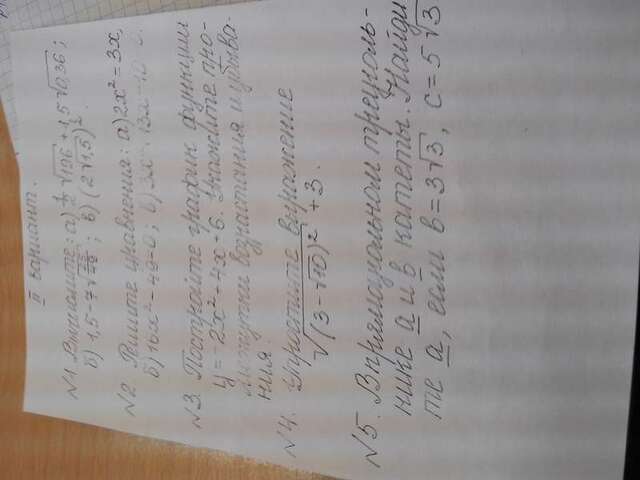 II вариант.
N1 Вычислите: а) 1/2 √196 + 1,5 √0,36;
б) 1,5 - 7 ; в) (2√1,5)².
N2. Решите уравнения: а) 2x² = 3x,
б) 16x² - 49 = 0; в)
N3. Постройте график функции
y = -2x² + 4x + 6. Укажите про-
межутки возрастания и убыва-
ния.
N4. Упростите выражение
√(3-√10)² + 3.
N5. В прямоугольном треуголь-
нике а и в катеты. Найди
те а, если в = 3√3, с = 5√3